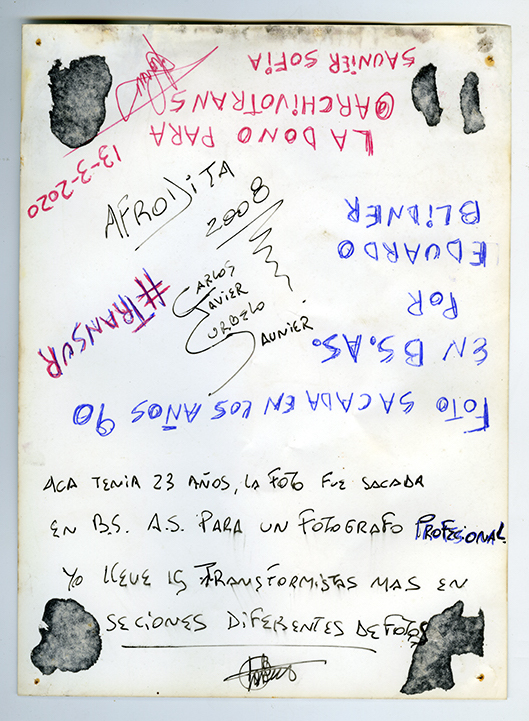 AFRODITA
2008
CARLOS
JAVIER
CURBELO
SAUNIER
#TRANSUR
ACA TENIA 23 AÑOS, LA FOTO FUE SACADA
EN B.S. A.S. PARA UN FOTOGRAFO PROFESIONAL.
YO LLEVE 15 TRANSFORMISTAS MAS EN
SECIONES DIFERENTES DE FOTOS
FOTO SACADA EN LOS AÑOS 90
EN BS.AS.
POR
EDUARDO
BLIDNER
LA DONO PARA
@ARCHIVOTRANS
SAUNIER SOFIA
13-3-2020